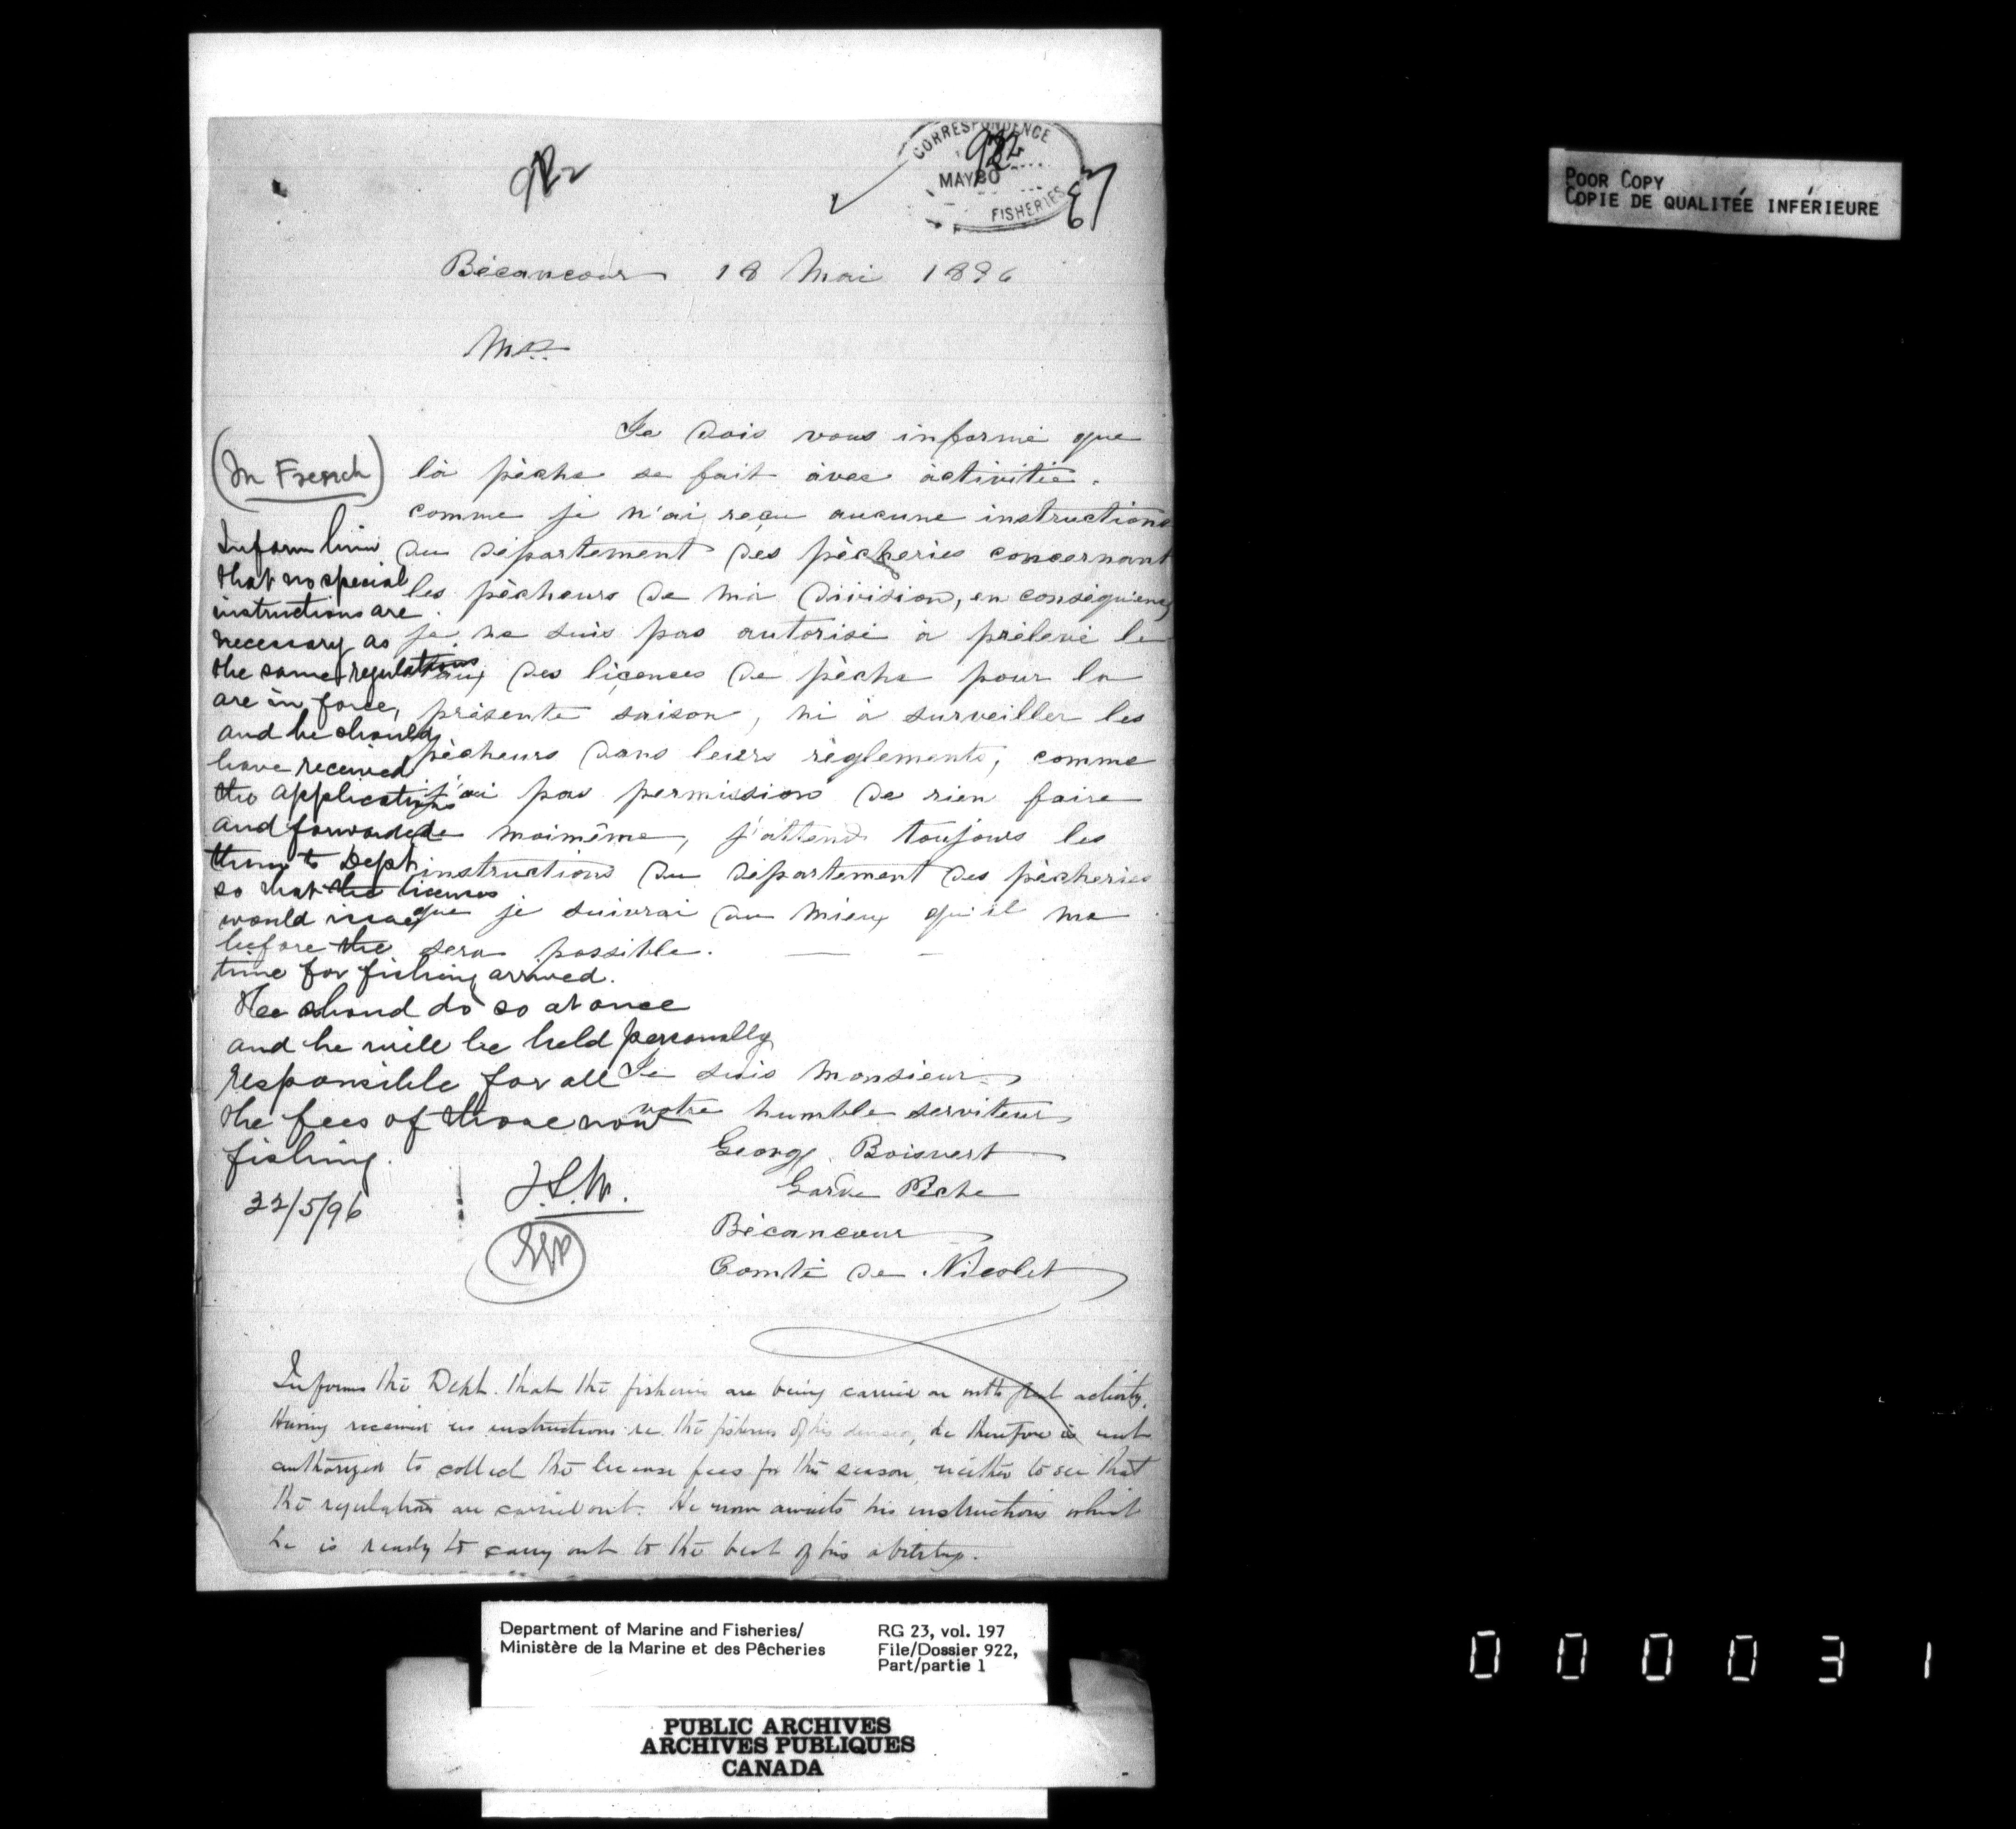 922
CORRESPONDENCE
922
MAY 20
FISHERIES
Bécancour 18 Mai 1896
Mr.
Je dois vous informé que
là pêche se fait àvec àctivitié.
comme je n'ai reçu aucune instructions
du département des pêcheries concernant
les pêcheurs de mà division, en conséquence
je ne suis pas autorisé à prélevé le
des liçences de pêche pour la
présente saison, ni à surveiller les
pêcheurs dans leurs règlements, comme
j'ai pas permission de rien faire
de moimême, j'attend toujours les
instructions du département des pêcheries
que je suivrai au mieux qu'il me
sera possible.
Je suis monsieur
votre humble serviteur
George Boisvert
Garde Pêche
Bécancour
Comté de Nicolet
(In French)
Inform him
that no special
instructions are
necessary as
the same regulations
are in force,
and he should
have received
the applications
and forwarded
them to Dept
so that the licenses
would issue
before the
time for fishing arrived.
He shoud do so at once
and he will be held personally
responsible for all
the fees of those now
fishing.
22/5/96
Informs the Dept. that the fisheries are being carried on with great activity.
Having received no instructions re. the fisheries of his division, he therefore is not
authorized to collect the license fees for this season, neither to see that
the regulations are carried out. He now awaits his instructions which
he is ready to carry out to the best of his ability.
POOR COPY
COPIE DE QUALITÉE INFÉRIEURE
Department of Marine and Fisheries/
Ministère de la Marine et des Pêcheries
RG 23, vol. 197
File/Dossier 922,
Part/partie 1
PUBLIC ARCHIVES
ARCHIVES PUBLIQUES
CANADA
000031